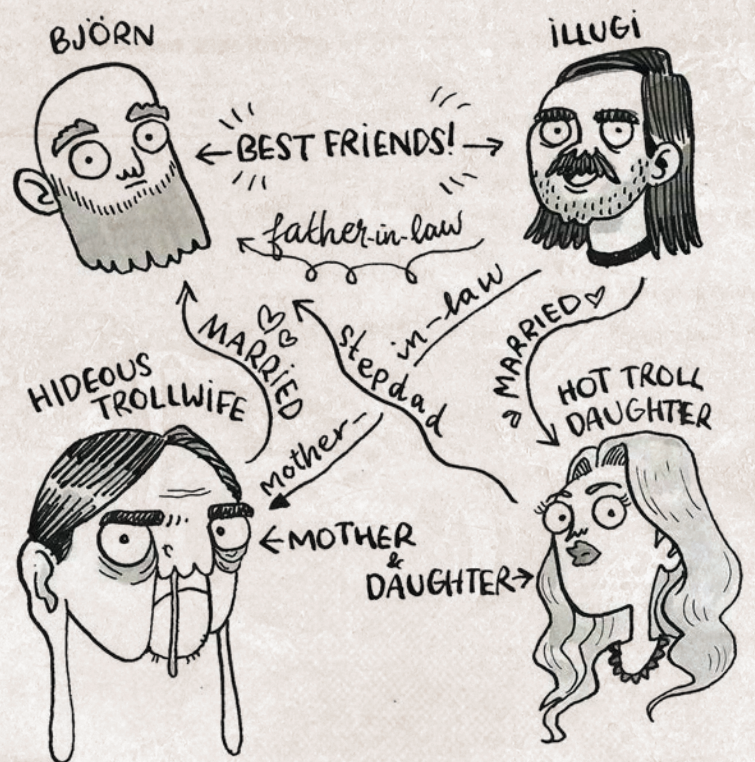 BJÖRN
iLLUGi
BEST FRiENDS!
father-in-law
MARRiED
stepdad
mother-in-law
MARRiED
HiDEOUS
TROLLWiFE
HOT TROLL
DAUGHTER
MOTHER
&
DAUGHTER